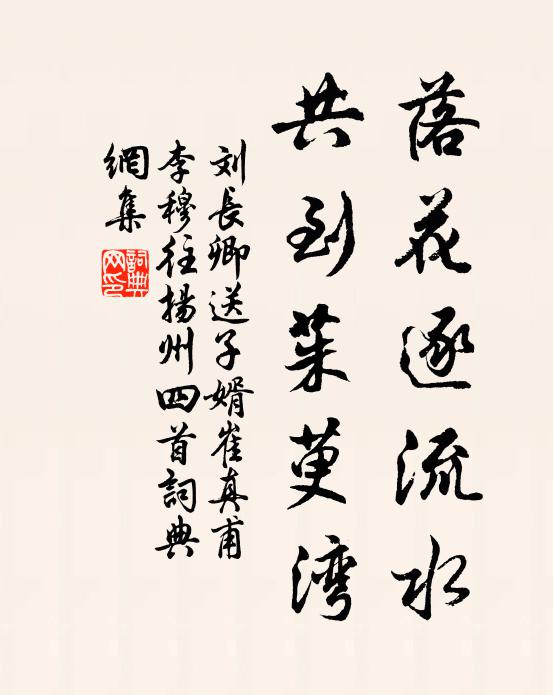 落花逐流水
共到茱萸湾
刘長卿送子婿崔真甫
李穆往揚州四首詞典
網集
詞典網印